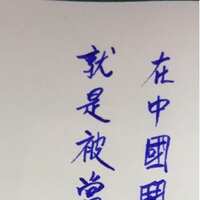 在中國鬥
就是被當